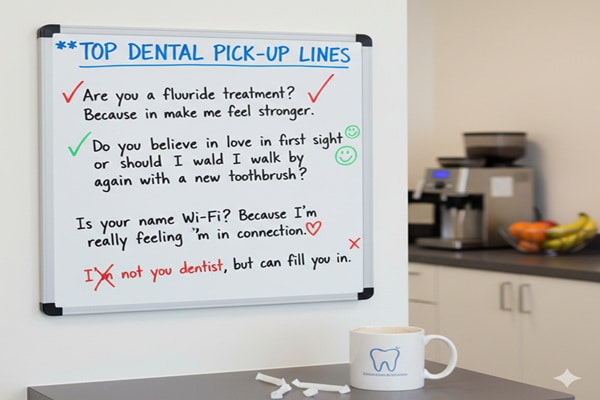 **TOP DENTAL PICK-UP LINES
Are you a fluuride treatment?
Because in make me feel stronger.
Do you believe in love in first sight
or should I wald I walk by
again with a new toothbrush?
Is your name Wi-Fi? Because I'm
really feeling "m in connection.
I'm not you dentist, but can fill you in.